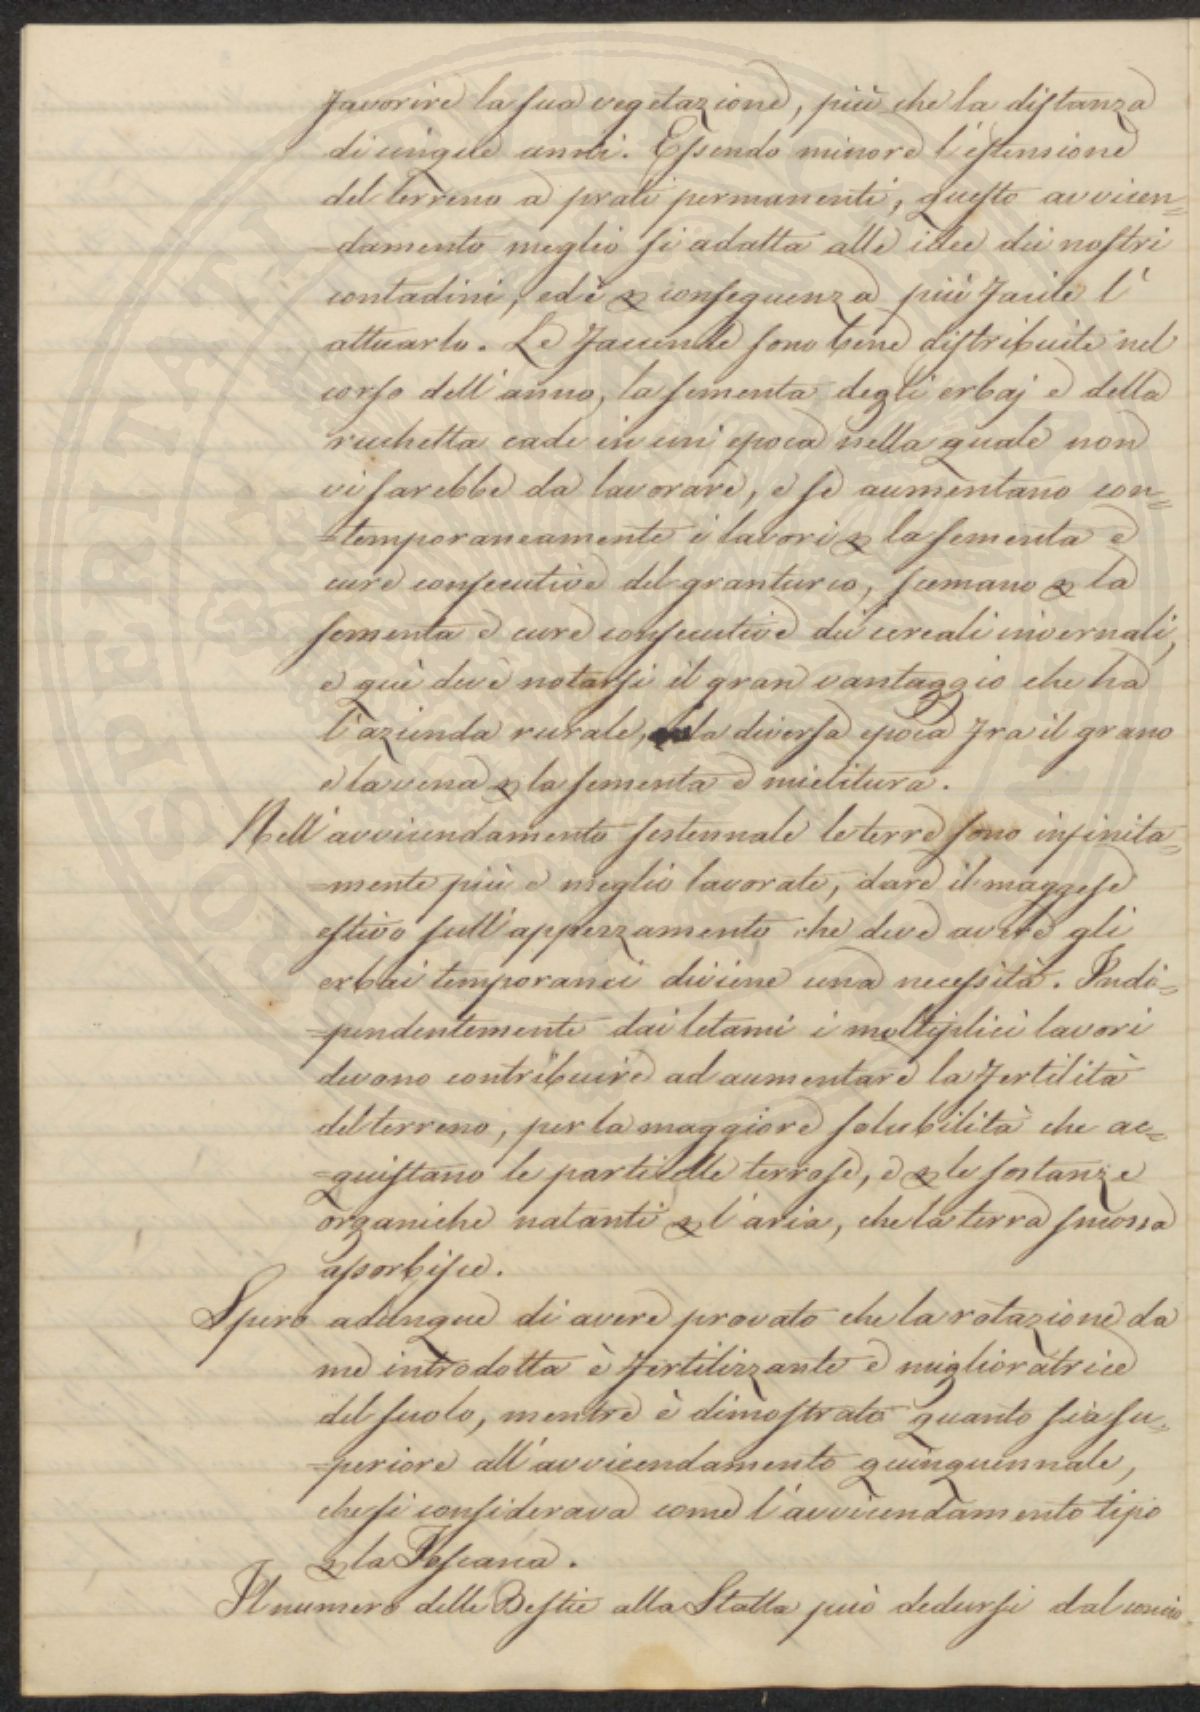 favorire la sua vegetazione, più che la distanza
di cinque anni. Essendo minore l'estensione
del terreno a prati permanenti, questo avvicen=
=damento meglio si adatta alle idee dei nostri
contadini, ed è p conseguenza più facile l'
attuarlo. Le faccende sono bene distribuite nel
corso dell'anno, la sementa degli erbaj e della
ruchetta cade in un'epoca nella quale non
vi sarebbe da lavorare, e se aumentano con=
=temporaneamente i lavori p la sementa e
cure consecutive del granturco, scemano p la
sementa e cure consecutive dei cereali invernali,
e quì deve notarsi il gran vantaggio che ha
l'azienda rurale, la diversa epoca fra il grano
e la vena p la sementa e mietitura.
Nell'avvicendamento sestennale le terre sono infinita=
=mente più e meglio lavorate, dare il maggese
estivo sull'appezzamento che deve avere gli
erbai temporanei diviene una necessità. Indi=
=pendentemente dai letami i moltiplici lavori
devono contribuire ad aumentare la fertilità
del terreno, per la maggiore solubilità che ac=
=quistano le particelle terrose, e p le sostanze
organiche natanti p l'aria, che la terra smossa
assorbisce.
Spero adunque di avere provato che la rotazione da
me introdotta è fertilizzante e miglioratrice
del suolo, mentre è dimostrato quanto sia su=
=periore all'avvicendamento quinquennale,
che si considerava come l'avvicendamento tipo
p la Toscana.
Il numero delle Bestie alla Stalla può dedursi dal concio
PROSPERITATI PUBLICAE